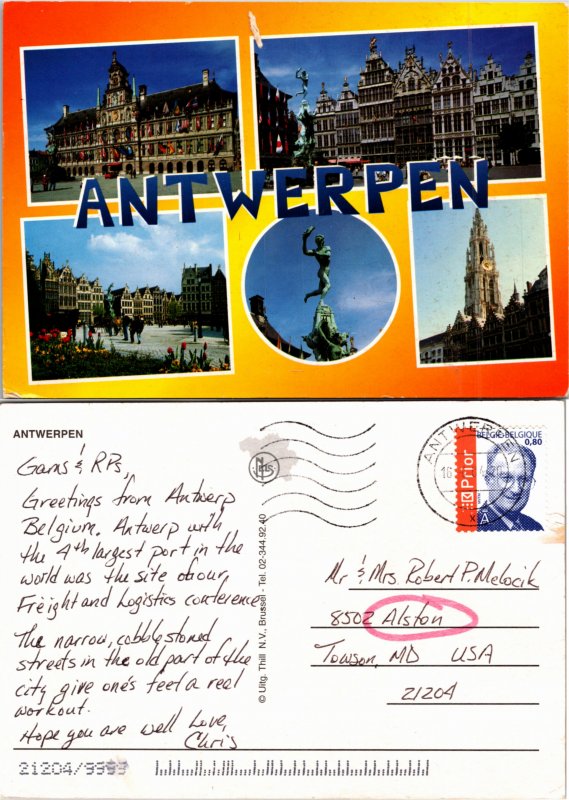 ANTWERPEN
ANTWERPEN
Gams & RPs,
Greetings from Antwerp
Belgium. Antwerp with
the 4th largest port in the
world was the site of our
Freight and Logistics conference
The narrow, cobble stoned
streets in the old part of the
city give one's feet a real
workout.
Hope you are well Love,
Chris
© Uitg. Thill N.V., Brussel - Tel. 02-344.92.40
ANTWERPEN
16
BELGIË-BELGIQUE
0,80
Prior
A
Mr & Mrs. Robert P. Melocik
8502 Alston
Towson, MD USA
21204
21204/9999